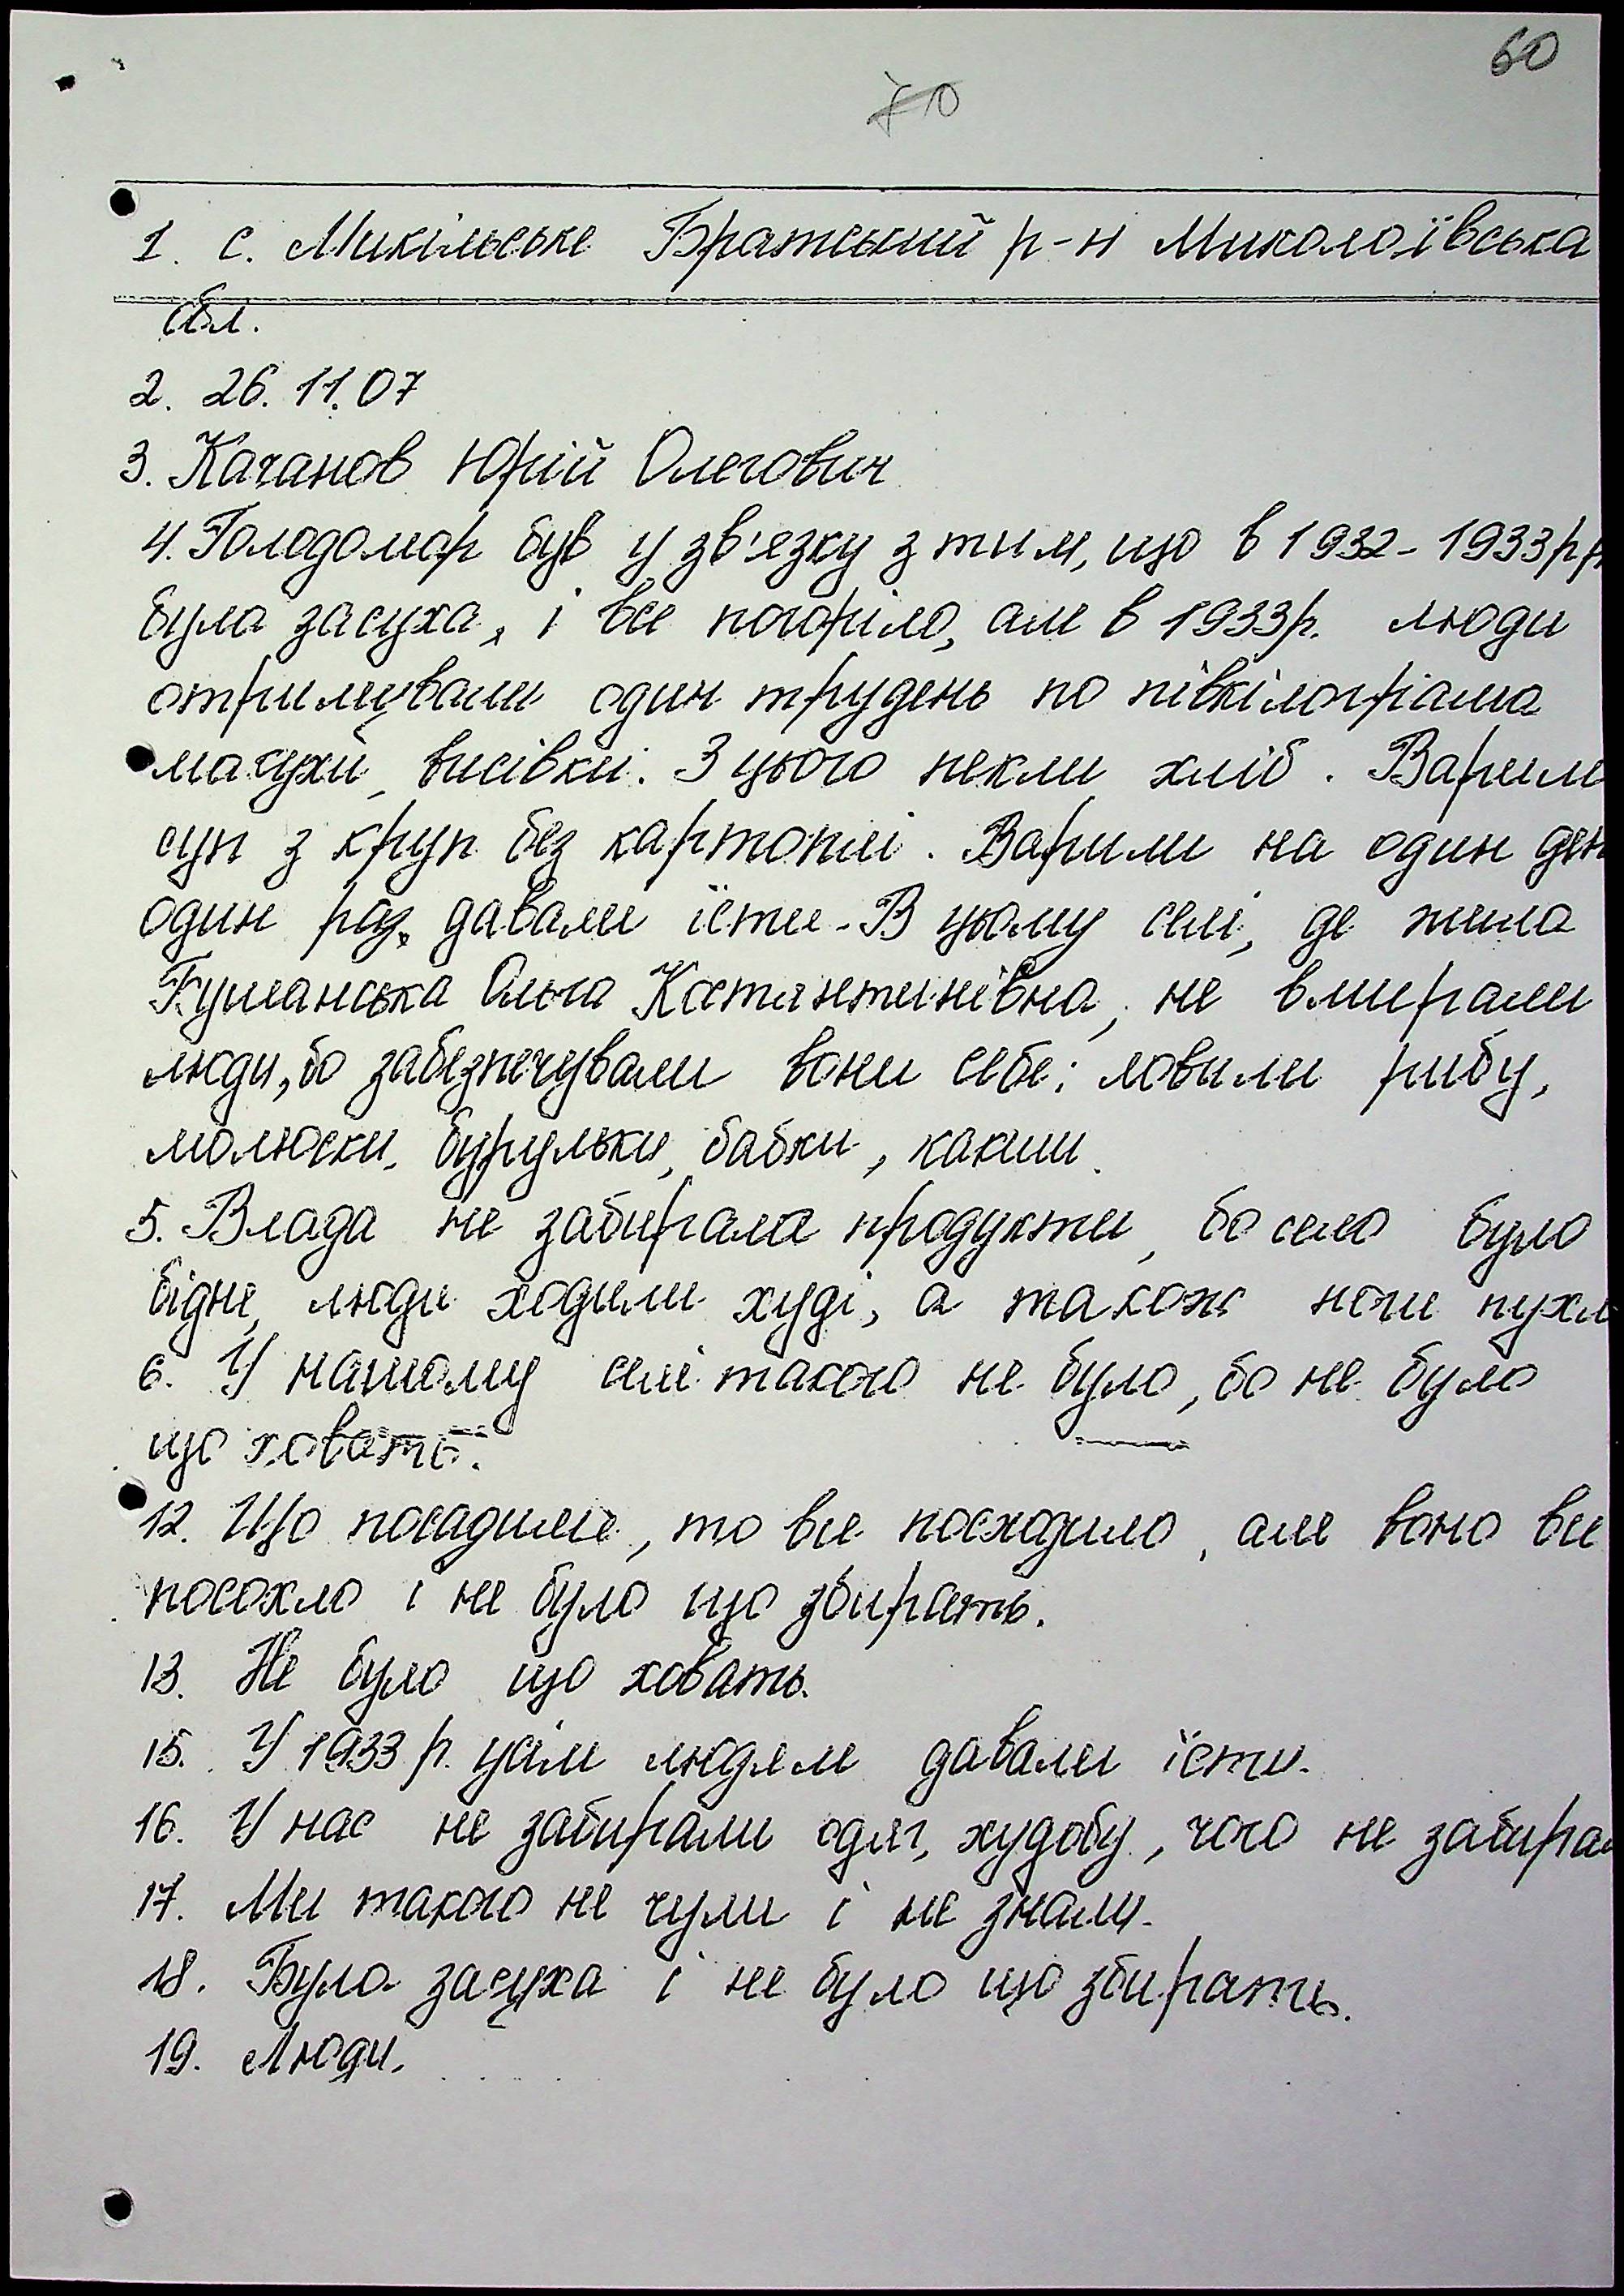 60
70
1. с. Микільське Братський р-н Миколаївська
обл.
2. 26.11.07
3. Качанов Юрій Олегович
4. Голодомор був у зв'язку з тим, що в 1932-1933рр
була засуха, і все погоріло, але в 1933р. люди
отримували один трудень по півкілограма
масухи, висівки. З цього пекли хліб. Варили
суп з круп без картоплі. Варили на один ден
один раз давали їсти. В цьому селі, де жила
Гуманська Ольга Костянтинівна, не вмирали
люди, бо забезпечували вони себе: ловили рибу,
молюски, бурульки, бабки, какиш.
5. Влада не забирала продукти, бо село було
бідне, люди ходили худі, а також ноги пухл
6. У нашому селі такого не було, бо не було
що ховать.
12. Що посадили, то все посходило, але воно все
посохло і не було що збирать.
13. Не було що ховать.
15. У 1933 р. усім людям давали їсти.
16. У нас не забирали одяг, худобу, чого не забирал
17. Ми такого не чули і не знали.
18. Була засуха і не було що збирать.
19. Люди.